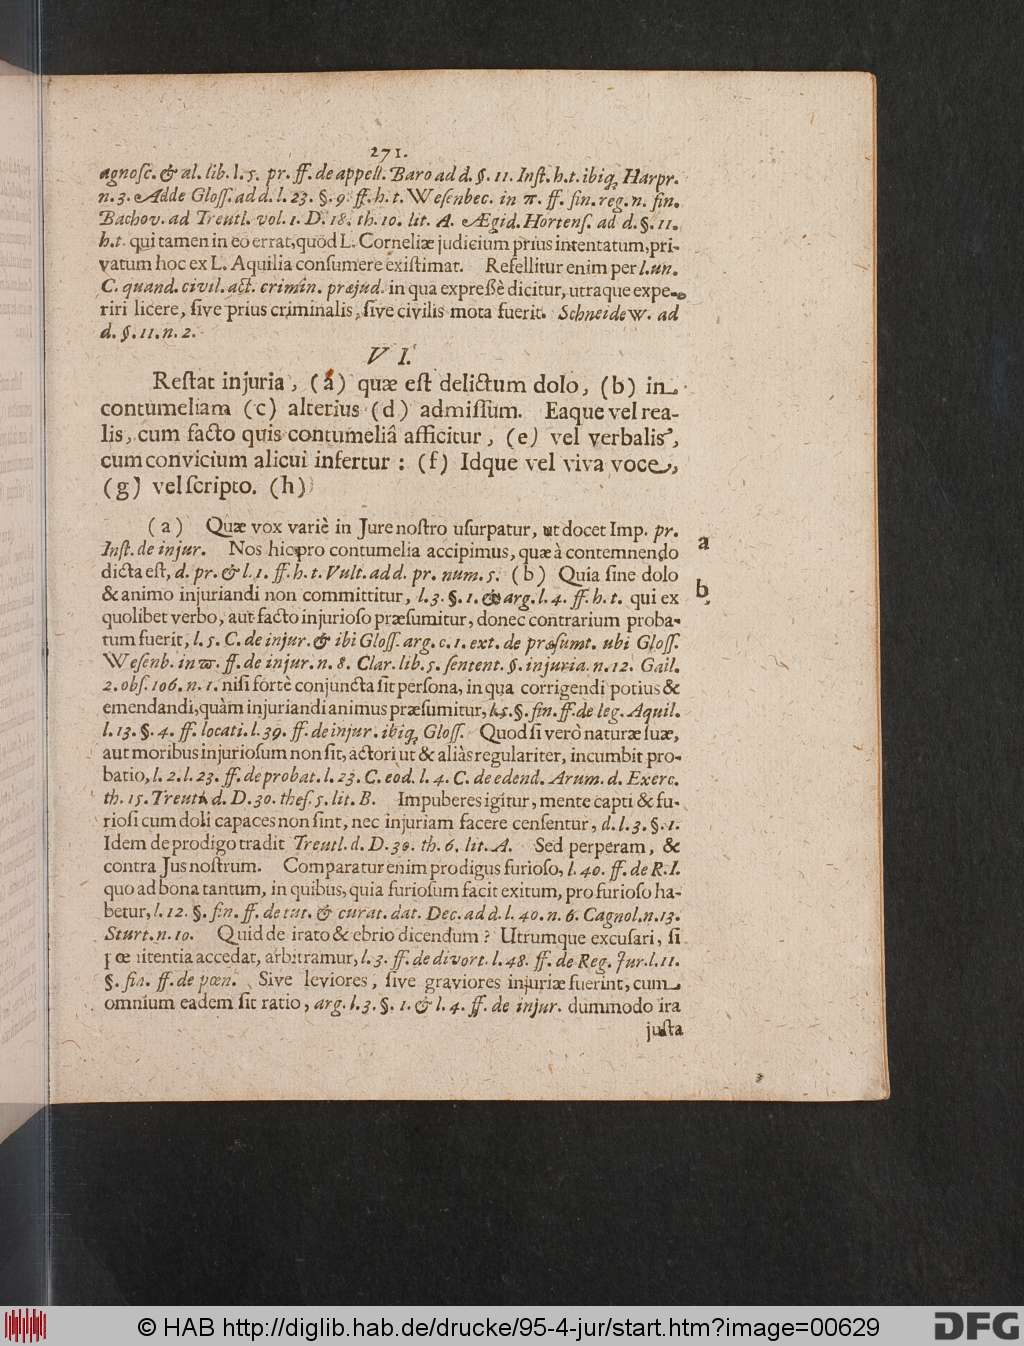 271.
agnosc. & al. lib. l. 5. pr. ff. de appell. Baro ad d. §. 11. Inst. h. t. ibiq; Harpr.
n. 3. Adde Gloss. ad d. l. 23. §. 9. ff. h. t. Wesenbec. in π. ff. fin. reg. n. fin.
Bachov. ad Treutl. vol. 1. D. 18. th. 10. lit. A. Ægid. Hortens. ad d. §. 11.
h. t. qui tamen in eo errat, quòd L. Corneliæ judicium prius intentatum, pri-
vatum hoc ex L. Aquilia consumere existimat. Refellitur enim per l. un.
C. quand. civil. act. crimin. præjud. in qua expressè dicitur, utraque expe-
riri licere, sive prius criminalis, sive civilis mota fuerit. Schneidew. ad
d. §. 11. n. 2.
VI.
Restat injuria, (a) quæ est delictum dolo, (b) in
contumeliam (c) alterius (d) admissum. Eaque vel rea-
lis, cum facto quis contumeliâ afficitur, (e) vel verbalis,
cum convicium alicui infertur: (f) Idque vel viva voce,
(g) vel scripto. (h)
(a) Quæ vox variè in Jure nostro usurpatur, ut docet Imp. pr.
Inst. de injur. Nos hic pro contumelia accipimus, quæ à contemnendo
dicta est, d. pr. & l. 1. ff. h. t. Vult. ad d. pr. num. 5. (b) Quia sine dolo
& animo injuriandi non committitur, l. 3. §. 1. & arg. l. 4. ff. h. t. qui ex
quolibet verbo, aut facto injurioso præsumitur, donec contrarium proba-
tum fuerit, l. 5. C. de injur. & ibi Gloss. arg. c. 1. ext. de præsumt. ubi Gloss.
Wesenb. in ϖ. ff. de injur. n. 8. Clar. lib. 5. sentent. §. injuria. n. 12. Gail.
2. obs. 106. n. 1. nisi fortè conjuncta sit persona, in qua corrigendi potius &
emendandi, quàm injuriandi animus præsumitur, l. 5. §. fin. ff. de leg. Aquil.
l. 13. §. 4. ff. locati. l. 39. ff. de injur. ibiq; Gloss. Quod si verò naturæ suæ,
aut moribus injuriosum non sit, actori ut & aliàs regulariter, incumbit pro-
batio, l. 2. l. 23. ff. de probat. l. 23. C. eod. l. 4. C. de edend. Arum. d. Exerc.
th. 15. Treutl. d. D. 30. thes. 5. lit. B. Impuberes igitur, mente capti & fu-
riosi cum doli capaces non sint, nec injuriam facere censentur, d. l. 3. §. 1.
Idem de prodigo tradit Treutl. d. D. 30. th. 6. lit. A. Sed perperam, &
contra Jus nostrum. Comparatur enim prodigus furioso, l. 40. ff. de R. I.
quo ad bona tantum, in quibus, quia furiosum facit exitum, pro furioso ha-
betur, l. 12. §. fin. ff. de tut. & curat. dat. Dec. ad d. l. 40. n. 6. Cagnol. n. 13.
Sturt. n. 10. Quid de irato & ebrio dicendum? Utrumque excusari, si
pœnitentia accedat, arbitramur, l. 3. ff. de divort. l. 48. ff. de Reg. Jur. l. 11.
§. fin. ff. de pœn. Sive leviores, sive graviores injuriæ fuerint, cum
omnium eadem sit ratio, arg. l. 3. §. 1. & l. 4. ff. de injur. dummodo ira
justa
a
b
© HAB http://diglib.hab.de/drucke/95-4-jur/start.htm?image=00629
DFG